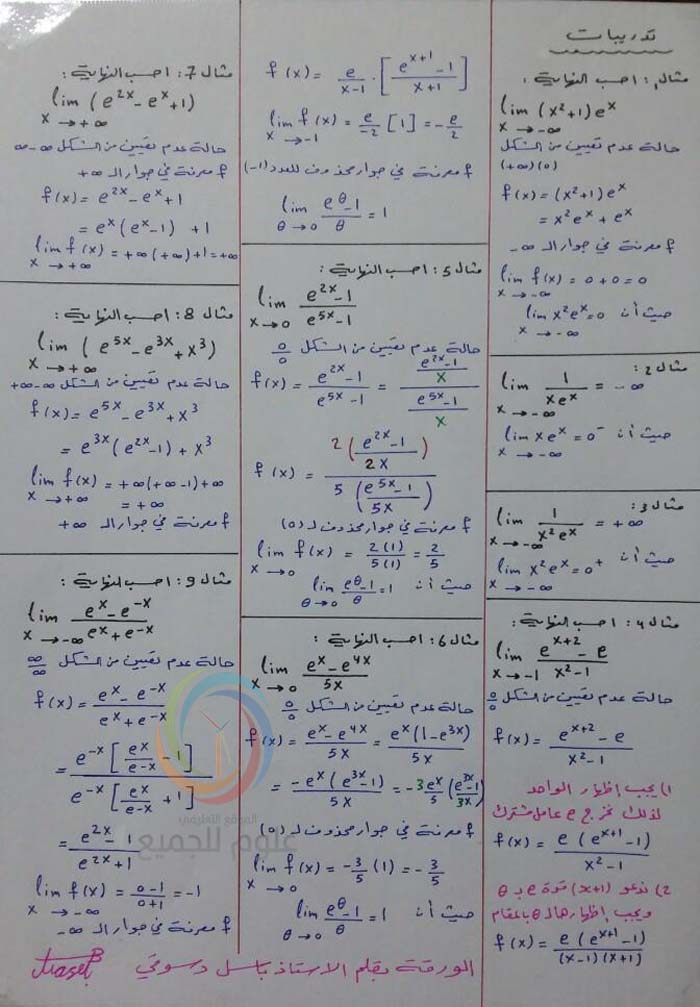 تدريبات
مثال 1: احسب النهاية:
lim (x²+1)eˣ
x → -∞
حالة عدم تعيين من الشكل
(+∞)(0)
f(x) = (x²+1)eˣ
= x²eˣ + eˣ
f معرفة في جوار الـ -∞
lim f(x) = 0+0 = 0
x → -∞
حيث أن lim x²eˣ = 0
x → -∞
مثال 2:
lim 1/(xeˣ) = -∞
x → -∞
حيث أن lim xeˣ = 0⁻
x → -∞
مثال 3:
lim 1/(x²eˣ) = +∞
x → -∞
حيث أن lim x²eˣ = 0⁺
x → -∞
مثال 4: احسب النهاية:
lim (eˣ⁺² - e)/(x²-1)
x → -1
حالة عدم تعيين من الشكل 0/0
f(x) = (eˣ⁺² - e)/(x²-1)
1) يجب إظهار الواحد
لذلك نخرج e عامل مشترك
f(x) = e(eˣ⁺¹-1)/(x²-1)
2) ندعو (x+1) قوة e بـ θ
ويجب إظهار هالـ θ بالمقام
f(x) = e(eˣ⁺¹-1)/((x-1)(x+1))
f(x) = e/(x-1) · [(eˣ⁺¹-1)/(x+1)]
lim f(x) = e/-2 [1] = -e/2
x → -1
f معرفة في جوار محذوف للعدد (-1)
lim (e^θ-1)/θ = 1
θ → 0
مثال 5: احسب النهاية:
lim (e²ˣ-1)/(e⁵ˣ-1)
x → 0
حالة عدم تعيين من الشكل 0/0
f(x) = (e²ˣ-1)/(e⁵ˣ-1) = ((e²ˣ-1)/x)/((e⁵ˣ-1)/x)
f(x) = 2((e²ˣ-1)/2x)/5((e⁵ˣ-1)/5x)
f معرفة في جوار محذوف لـ (0)
lim f(x) = 2(1)/5(1) = 2/5
x → 0
حيث أن lim (e^θ-1)/θ = 1
θ → 0
مثال 6: احسب النهاية:
lim (eˣ-e⁴ˣ)/5x
x → 0
حالة عدم تعيين من الشكل 0/0
f(x) = (eˣ-e⁴ˣ)/5x = eˣ(1-e³ˣ)/5x
= -eˣ(e³ˣ-1)/5x = -3eˣ/5 ((e³ˣ-1)/3x)
f معرفة في جوار محذوف لـ (0)
lim f(x) = -3/5 (1) = -3/5
x → 0
حيث أن lim (e^θ-1)/θ = 1
θ → 0
مثال 7: احسب النهاية:
lim (e²ˣ-eˣ+1)
x → +∞
حالة عدم تعيين من الشكل ∞-∞
f معرفة في جوار الـ +∞
f(x) = e²ˣ-eˣ+1
= eˣ(eˣ-1) +1
lim f(x) = +∞(+∞)+1 = +∞
x → +∞
مثال 8: احسب النهاية:
lim (e⁵ˣ-e³ˣ+x³)
x → +∞
حالة عدم تعيين من الشكل +∞-∞
f(x) = e⁵ˣ-e³ˣ+x³
= e³ˣ(e²ˣ-1)+x³
lim f(x) = +∞(+∞-1)+∞
x → +∞ = +∞
f معرفة في جوار الـ +∞
مثال 9: احسب النهاية:
lim (eˣ-e⁻ˣ)/(eˣ+e⁻ˣ)
x → -∞
حالة عدم تعيين من الشكل ∞/∞
f(x) = (eˣ-e⁻ˣ)/(eˣ+e⁻ˣ)
= e⁻ˣ[eˣ/e⁻ˣ -1]/e⁻ˣ[eˣ/e⁻ˣ +1]
= (e²ˣ-1)/(e²ˣ+1)
lim f(x) = (0-1)/(0+1) = -1
x → -∞
f معرفة في جوار الـ -∞
الورقة بقلم الاستاذ باسل دسوقي
الموقع التعليمي
علوم للجميع